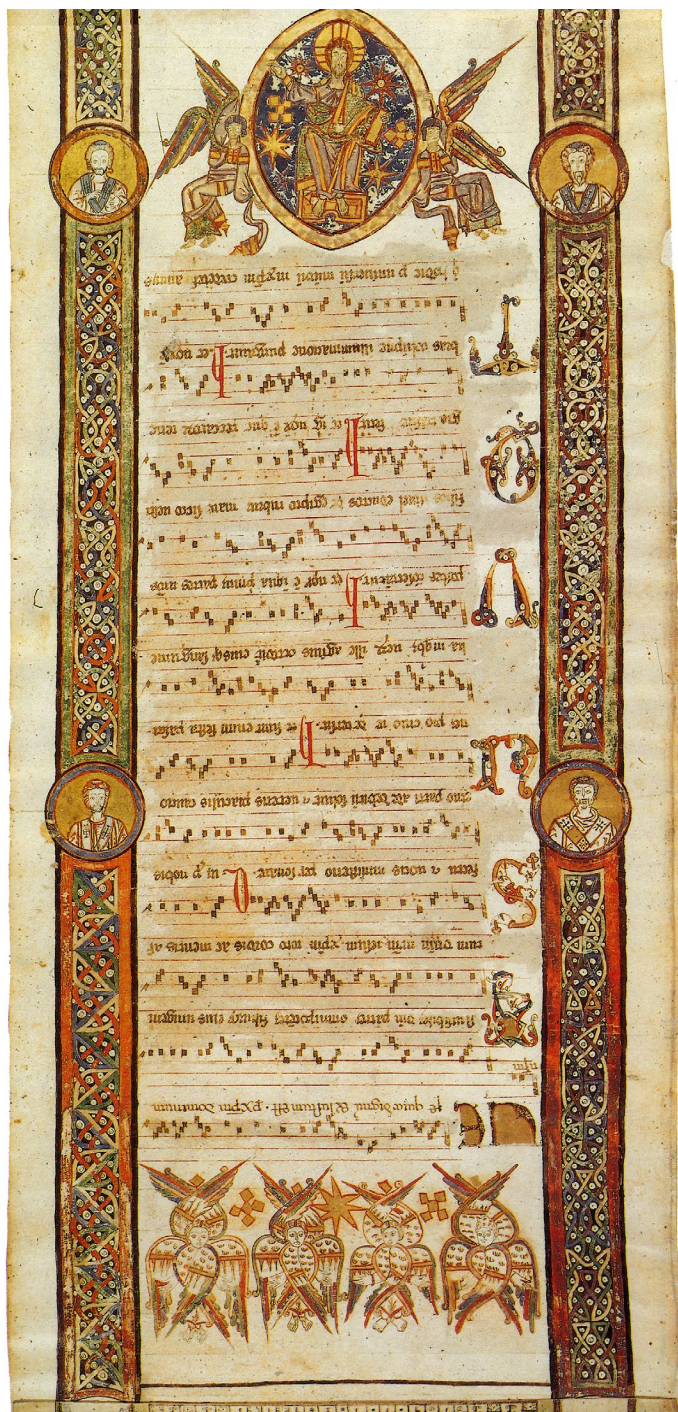 re quia dignu & iustum est · p xpm dominum
nrm
inuisibile dm patre omnipotete filiuq; eius unigeni
tum dnm nrm iesum xpm toto cordis ac mentis af
fectu & uocis ministerio personare · Qui p nobis
etno patri ade debitu soluit & ueteris piaculis cautio
ne pio cruore detersit · Hec sunt enim festa pascha
lia in qbt uerus ille agnus occidit eiusq; sanguine
postes consecrant · Hec nox e in qua primu patres nros
filios israel eductos de egipto rubru mare sicco uesti
gio fecisti · Hec igit nox e que peccatoru tene
bras columne illuminatione purgauit · Hec nox
e hodie p uniuersu mundu in xpm credentes a